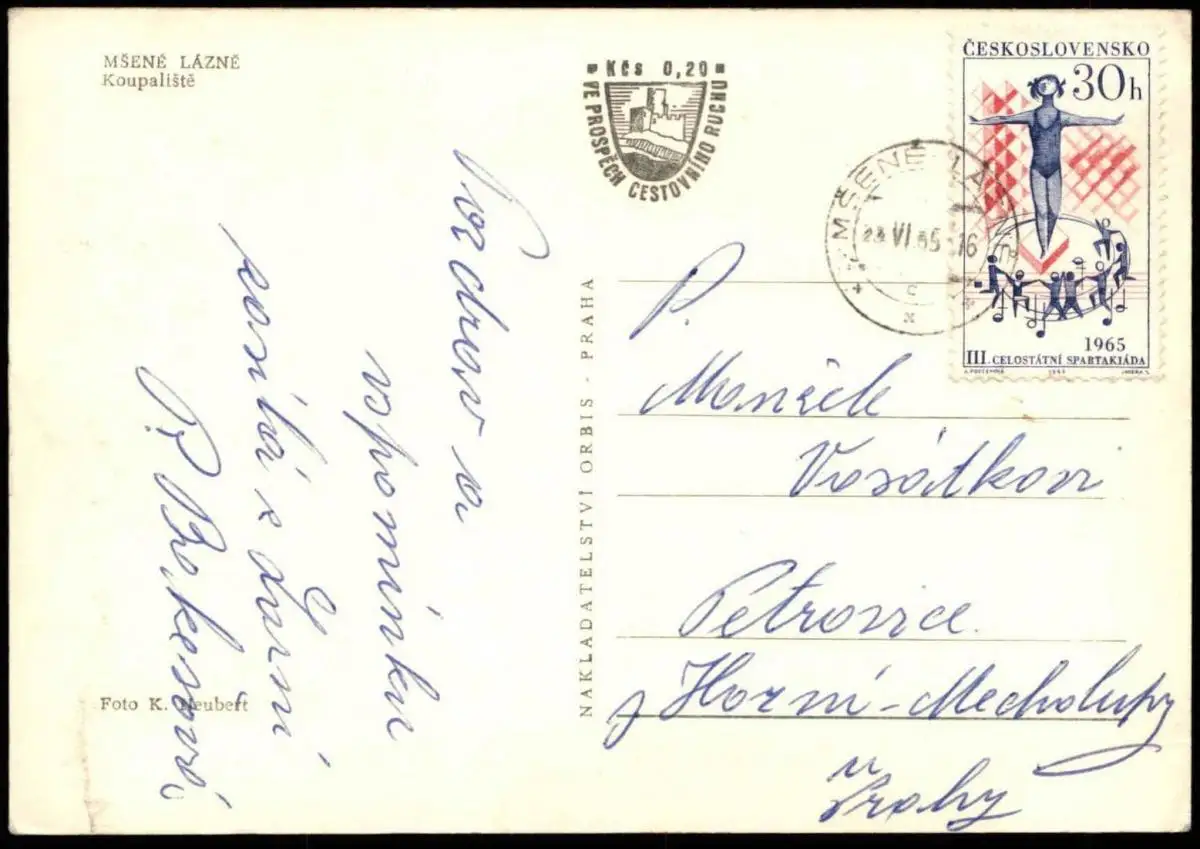 MŠENÉ LÁZNĚ
Koupaliště
Kčs 0,20
VE PROSPĚCH CESTOVNÍHO RUCHU
ČESKOSLOVENSKO
30h
1965
III. CELOSTÁTNÍ SPARTAKIÁDA
MŠENÉ
VI.65-16
c
Pozdrav a
vzpomínku
posílá z Lázní
NAKLADATELSTVÍ ORBIS - PRAHA
P.
Manžele
Vosátkovi
Petrovice.
p Horní-Mecholupy
u
Prahy
Foto K. Neubert